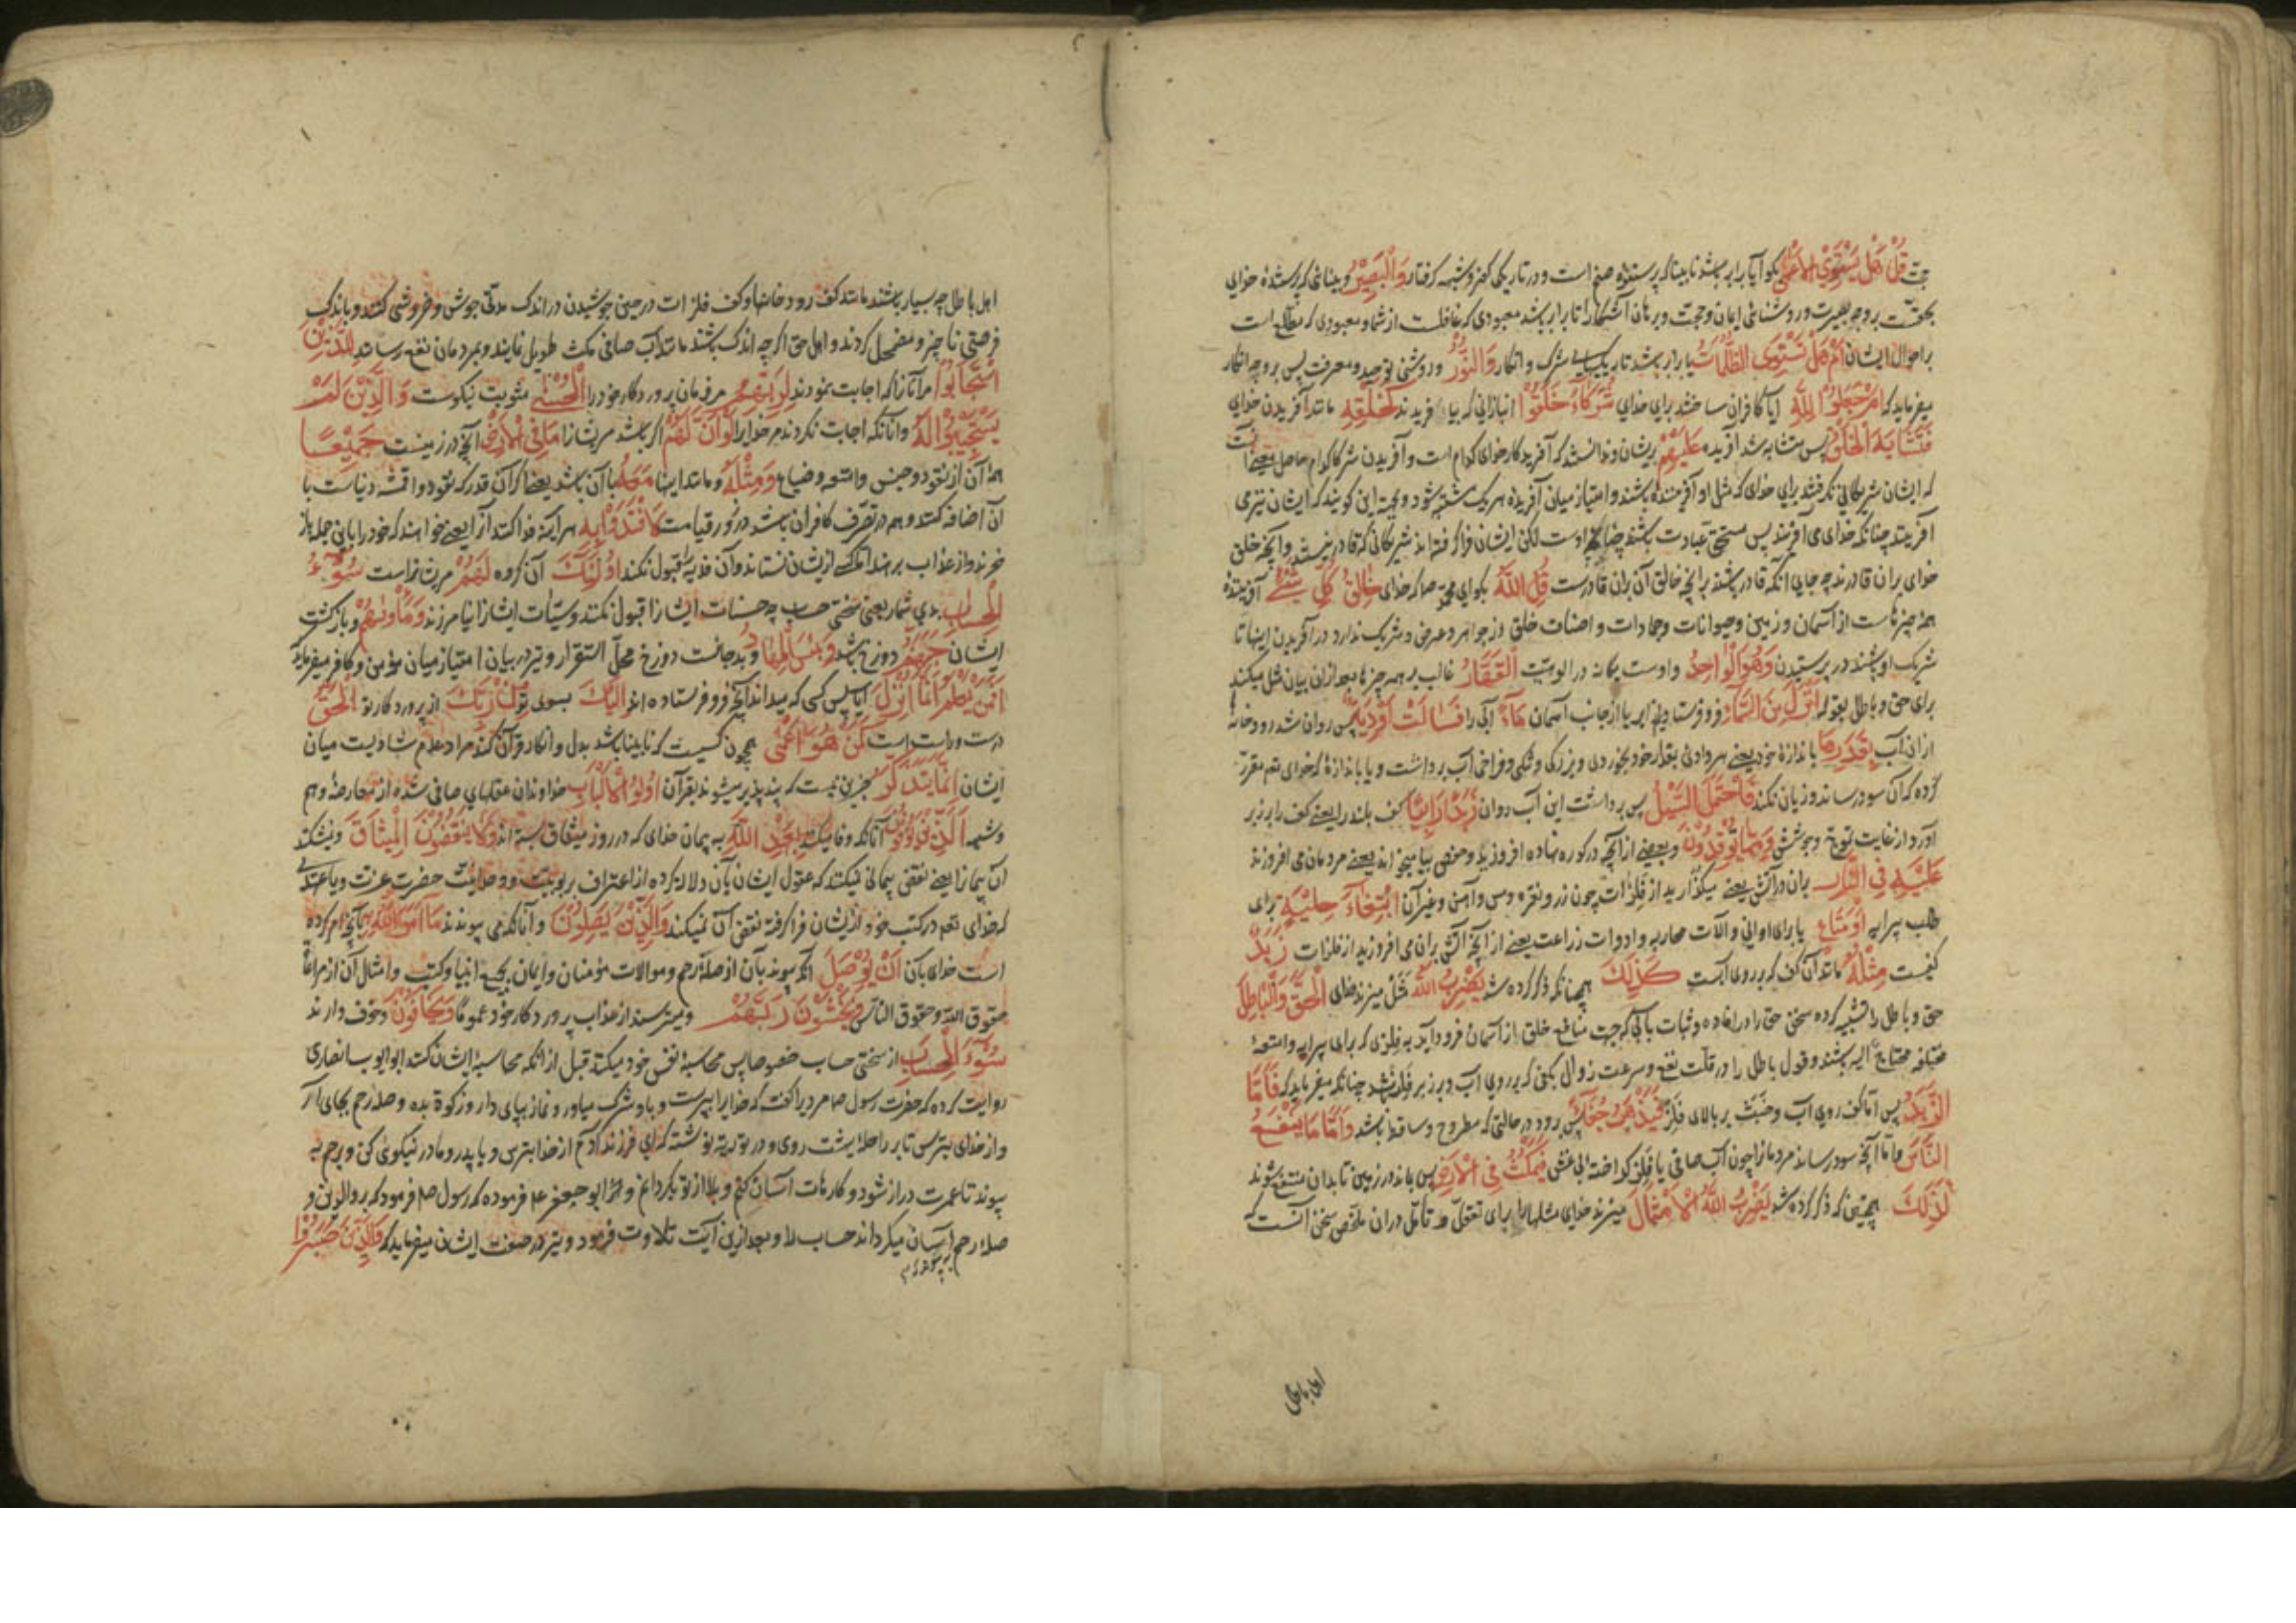 حجت قُلْ هَلْ يَسْتَوِي الْأَعْمَى بگو آیا برابر باشد نابینا که پرستنده صنم است و در تاریکی کفر و شبهه گرفتار وَالْبَصِيرُ و بینائی که پرستنده خدای
بحقست بر وجه بصیرت و روشنائی ایمان و حجت و برهان آشکارا تا برابر باشد معبودی که غافلست از شما و معبودی که مطلع است
بر احوال ایشان أَمْ هَلْ تَسْتَوِي الظُّلُمَاتُ یا برابر باشد تاریکیهای شرک و انکار وَالنُّورُ و روشنی توحید و معرفت پس بر وجه انکار
میفرماید که أَمْ جَعَلُوا لِلَّهِ آیا کافران ساختند برای خدای شُرَكَاءَ خَلَقُوا انبازانی که بیافریدند كَخَلْقِهِ مانند آفریدن خدای
فَتَشَابَهَ الْخَلْقُ پس متشابه شد آفریده عَلَيْهِمْ بریشان و ندانستند که آفریدکار خدای کدام است و آفریدن شرکا کدام حاصل معنی آنست
که ایشان شریکانی نگرفتند برای خدای که مثل او آفریننده باشند و امتیاز میان آفریده هر یک مشتبه شود و بجهة این گویند که ایشان نیز می
آفرینند چنانکه خدای می آفریند پس مستحق عبادت باشند چنانکه اوست لکن ایشان فرا گرفته اند شریکانی که قادر نیستند و آنچه خلق
خدای بران قادرند چه جای آنکه قادر باشند بر آنچه خالق آن بران قادرست قُلِ اللَّهُ بگو ای محمد صا که خدای خَالِقُ كُلِّ شَيْءٍ آفریننده
همه چیزهاست از آسمان و زمین و حیوانات و جمادات و اصناف خلق از جواهر و عرض و شریک ندارد در آفریدن اینها تا
شریک او باشند در پرستیدن وَهُوَ الْوَاحِدُ و اوست یگانه در الوهیت الْقَهَّارُ غالب بر همه چیزها بعد ازان بیان مثل میکند
برای حق و باطل بقوله أَنْزَلَ مِنَ السَّمَاءِ فرو فرستاد از ابر یا از جانب آسمان مَاءً آبی را فَسَالَتْ أَوْدِيَةٌ پس روان شد رودخانها
ازان آب بِقَدَرِهَا باندازهٔ خود یعنی هر وادئی بمقدار خود بخوردی و بزرگی و تنگی و فراخی آب برداشت و یا باندازهٔ که خدای تعم مقرر
کرده که آن سود رساند و زیان نکند فَاحْتَمَلَ السَّيْلُ پس برداشت این آب روان زَبَدًا رَابِيًا کف بلند را یعنی کف را بر زبر
آورد از غایت تموج و جوشش وَمِمَّا يُوقِدُونَ و بعضی از آنچه در کوره نهاده افروزید و حفص بیا میخواند یعنی مردمان می افروزند
عَلَيْهِ فِي النَّارِ بران در آتش یعنی میگذارید از فلزات چون زر و نقره و مس و آهن و غیر آن ابْتِغَاءَ حِلْيَةٍ برای
طلب پیرایه أَوْ مَتَاعٍ یا برای اوانی و آلات محاربه و ادوات زراعت یعنی از آنچه آتش بران می افروزید از فلزات زَبَدٌ
کفیست مِثْلُهُ مانند آن کف که بر روی آبست كَذَلِكَ همچنانکه ذکر کرده شد يَضْرِبُ اللَّهُ مثل میزند خدای الْحَقَّ وَالْبَاطِلَ
حق و باطل را تشبیه کرده سخن حق را در افاده و ثبات بآبی که جهت منافع خلق از آسمان فرود آید به فلزی که برای پیرایه و امتعهٔ
مختلفه محتاج الیه باشند و قول باطل را در قلت نفع و سرعت زوال بکفی که بر روی آب و بر زبر فلز باشد چنانکه میفرماید که فَأَمَّا
الزَّبَدُ پس اما کف روی آب و خبث بر بالای فلز فَيَذْهَبُ جُفَاءً پس برود در حالتی که مطروح و ساقط باشد وَأَمَّا مَا يَنْفَعُ
النَّاسَ و اما آنچه سود رساند مردمانرا چون آب صافی یا فلز گداخته بی غش فَيَمْكُثُ فِي الْأَرْضِ پس بماند در زمین تا بدان منتفع شوند
كَذَلِكَ همچنین که ذکر کرده شد يَضْرِبُ اللَّهُ الْأَمْثَالَ میزند خدای مثلها را برای تعقل و تأمل دران ملخص سخن آنست که
اهل باطل
اهل باطل چه بسیار باشند مانند کف رودخانها و کف فلزات در حین جوشیدن در اندک مدتی جوش و خروشی کنند و باندک
فرصتی ناچیز و مضمحل گردند و اهل حق اگر چه اندک باشند مانند آب صافی مکث طویل نمایند و بمردمان نفع رسانند لِلَّذِينَ
اسْتَجَابُوا مرآنانرا که اجابت نمودند لِرَبِّهِمُ مر فرمان پروردگار خود را الْحُسْنَى مثوبت نیکوست وَالَّذِينَ لَمْ
يَسْتَجِيبُوا لَهُ و آنانکه اجابت نکردند مر خدایرا لَوْ أَنَّ لَهُمْ اگر باشد مریشانرا مَا فِي الْأَرْضِ آنچه در زمینست جَمِيعًا
همهٔ آن از نقود و جنس و امتعه و ضیاع وَمِثْلَهُ و مانند اینها مَعَهُ با آن باشد یعنی اگر آن قدر که نقود و اقمشه دنیاست با
آن اضافه کنند و هم در تصرف کافران باشد در روز قیامت لَافْتَدَوْا بِهِ هر آینه فدا کنند آنرا یعنی خواهند که خود را باین جمله باز
خرند و از عذاب برهند لکن ازیشان نستانند و آن فدیه را قبول نکنند أُولَئِكَ آن گروه لَهُمْ مریشانراست سُوءُ
الْحِسَابِ بدی شمار یعنی سختی حساب چه حسنات ایشانرا قبول نکنند و سیئات ایشانرا نیامرزند وَمَأْوَاهُمْ و بازگشت
ایشان جَهَنَّمُ دوزخ باشد وَبِئْسَ الْمِهَادُ و بد جائیست دوزخ محل استقرار و نیز در بیان امتیاز میان مؤمن و کافر میفرماید که
أَفَمَنْ يَعْلَمُ أَنَّمَا أُنْزِلَ آیا پس کسی که میداند آنچه فرو فرستاده اند إِلَيْكَ بسوی تو مِنْ رَبِّكَ از پروردگار تو الْحَقُّ
درست و راست است كَمَنْ هُوَ أَعْمَى همچون کسیست که نابینا باشد بدل و انکار قرآن کند مراد عدم مساویت میان
ایشان إِنَّمَا يَتَذَكَّرُ جزین نیست که پند پذیر میشوند بقرآن أُولُو الْأَلْبَابِ خداوندان عقلهای صافی شده از معارضهٔ وهم
و شبهه الَّذِينَ يُوفُونَ آنانکه وفا میکنند بِعَهْدِ اللَّهِ به پیمان خدای که در روز میثاق بسته اند وَلَا يَنْقُضُونَ الْمِيثَاقَ و نشکنند
آن پیمانرا یعنی نقض پیمانی نمیکنند که عقول ایشان بآن دلالت کرده از اعتراف بربوبیت و وحدانیت حضرت عزت و یا عهدی
که خدای تعم در کتب خود ازیشان فرا گرفته نقض آن نمیکنند وَالَّذِينَ يَصِلُونَ و آنانکه می پیوندند مَا أَمَرَ اللَّهُ بِهِ آنچه امر کرده
است خدای بآن أَنْ يُوصَلَ آنکه پیوند بآن از صلهٔ رحم و موالات مؤمنان و ایمان بجمیع انبیا و کتب و امثال آن از مراعاة
حقوق الله و حقوق الناس وَيَخْشَوْنَ رَبَّهُمْ و میترسند از عذاب پروردگار خود عموما وَيَخَافُونَ و خوف دارند
سُوءَ الْحِسَابِ از سختی حساب خصوصا پس محاسبهٔ نفس خود میکنند قبل از آنکه محاسبهٔ ایشان کنند ابو ایوب انصاری
روایت کرده که حضرت رسول صا مردیرا گفت که خدایرا بپرست و باو شرک میاور و نماز بپای دار و زکوة بده و صلهٔ رحم بجای آر
و از خدای بترس تا بر راحله پشت روی و در توریة نوشته که ای فرزند آدم از خدا بترس و با پدر و مادر نیکوئی کن و برحم به
پیوند تا عمرت دراز شود و کارهات آسان کنم و بلا از تو بگردانم و ابو جعفر عم فرموده که رسول صم فرمود که بر والدین و
صلهٔ رحم آسان میگرداند حساب را و بعد ازین آیت تلاوت فرمود و نیز در صفت ایشان میفرماید که وَالَّذِينَ صَبَرُوا